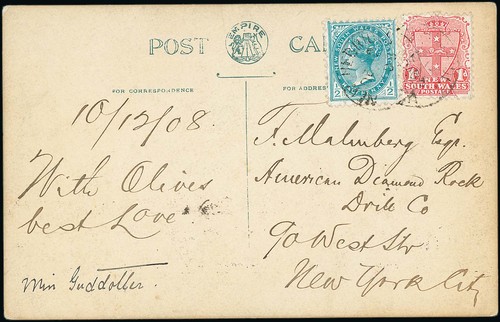 EMPIRE
POST CA
FOR CORRESPONDENCE
FOR ADDRESS
NEW
SOUTH WALES
POSTAGE
1d 1d
2 2
10/12/08.
With Olives
best Love
Miss Guddotter.
F. Malmberg Esqr.
American Diamond Rock
Drill Co
90 West Str.
New York City